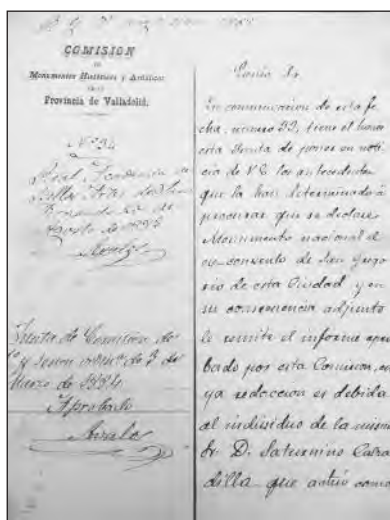 COMISION
DE
Monumentos Históricos y Artísticos
DE LA
Provincia de Valladolid.
Nº 34
Real Academia de
Bellas Artes de San
Fernando
Agosto de
Junta de Comision de
1º y sesion de 3 de
Marzo de 1884
Aprobado
Avalos
Excmo Sr.
En comunicacion de esta fe
cha, numero 33, tiene el honor
esta Junta de poner en noti
cia de V.E. los antecedentes
que la han determinado á
procurar que se declare
Monumento nacional el
ex-convento de San Grego
rio de esta Ciudad y en
su consecuencia adjunto
le remite el informe apro
bado por esta Comision, cu
ya redaccion es debida
al individuo de la misma
Sr. D. Saturnino Calza
dilla que actuó como